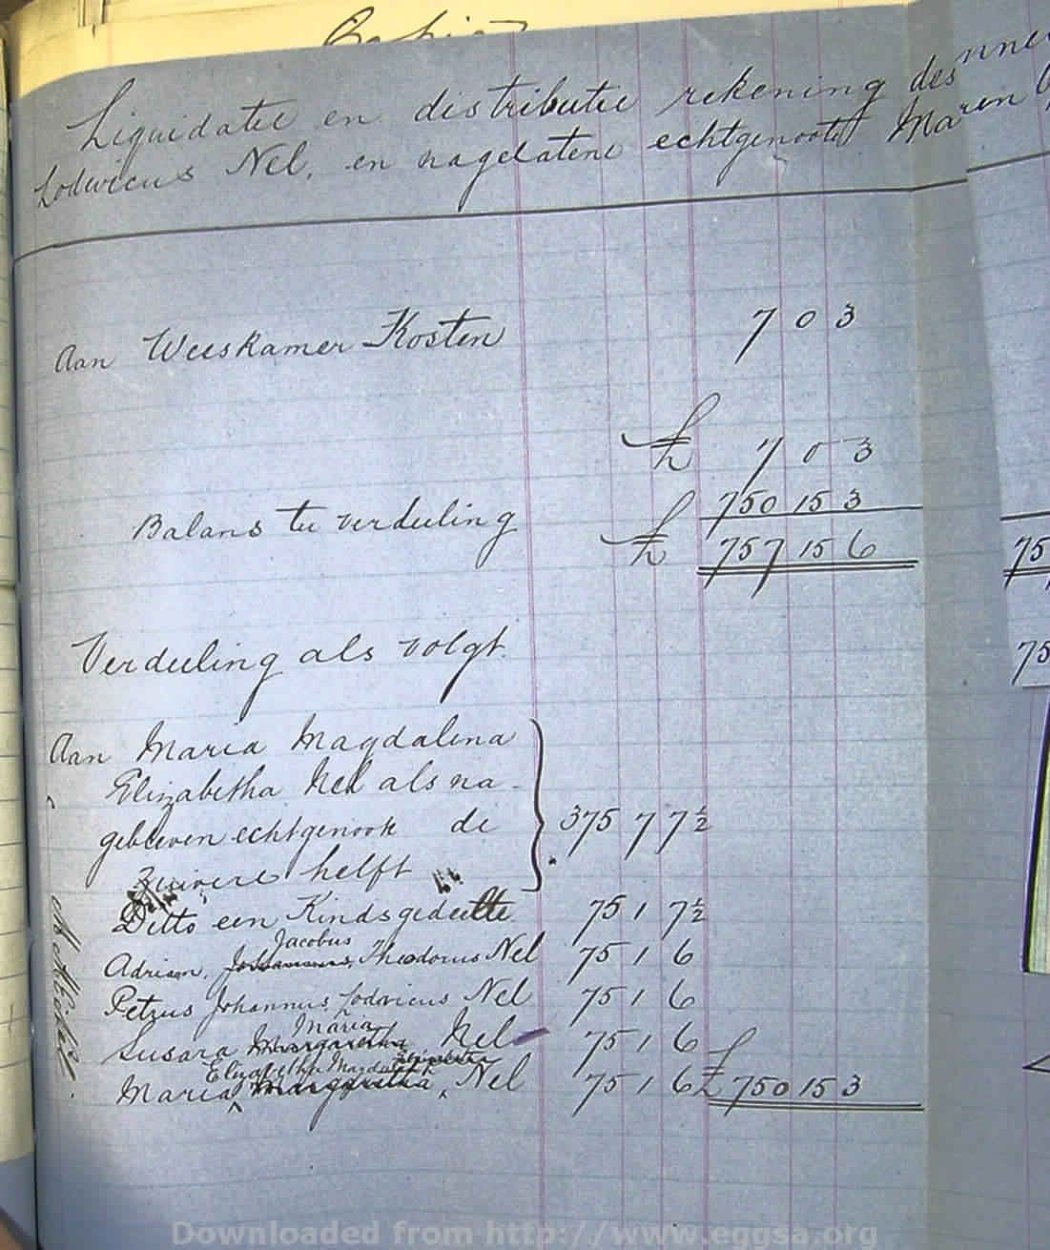 Liquidatie en distributie rekening des
Lodvicus Nel, en nagelatene echtgenoote Ma
Aan Weeskamer Kosten 7 0 3
£ 7 0 3
Balans te verdeeling 750 15 3
£ 757 15 6
75
75
Verdeeling als volgt
Aan Maria Magdalena
Elizabetha Nel als na-
gebleven echtgenoote de
zuivere helft 375 7 7½
Ditto een Kindsgedeelte 75 1 7½
Jacobus
Adriaan, Johannes, Theodorus Nel 75 1 6
Petrus Johannus Lodovicus Nel 75 1 6
Maria
Susara Margaretha Nel 75 1 6
Elizabetha Magdalena
Maria Margaretha, Nel 75 1 6 £ 750 15 3
Downloaded from http://www.eggsa.org